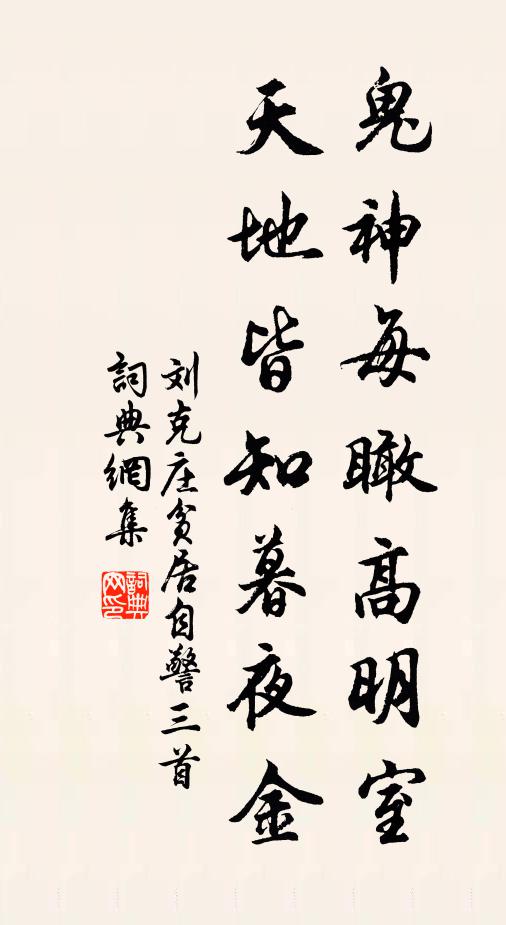 鬼神每瞰高明室
天地皆知暮夜金
刘克庄贫居自警三首
詞典網集
詞典
网印